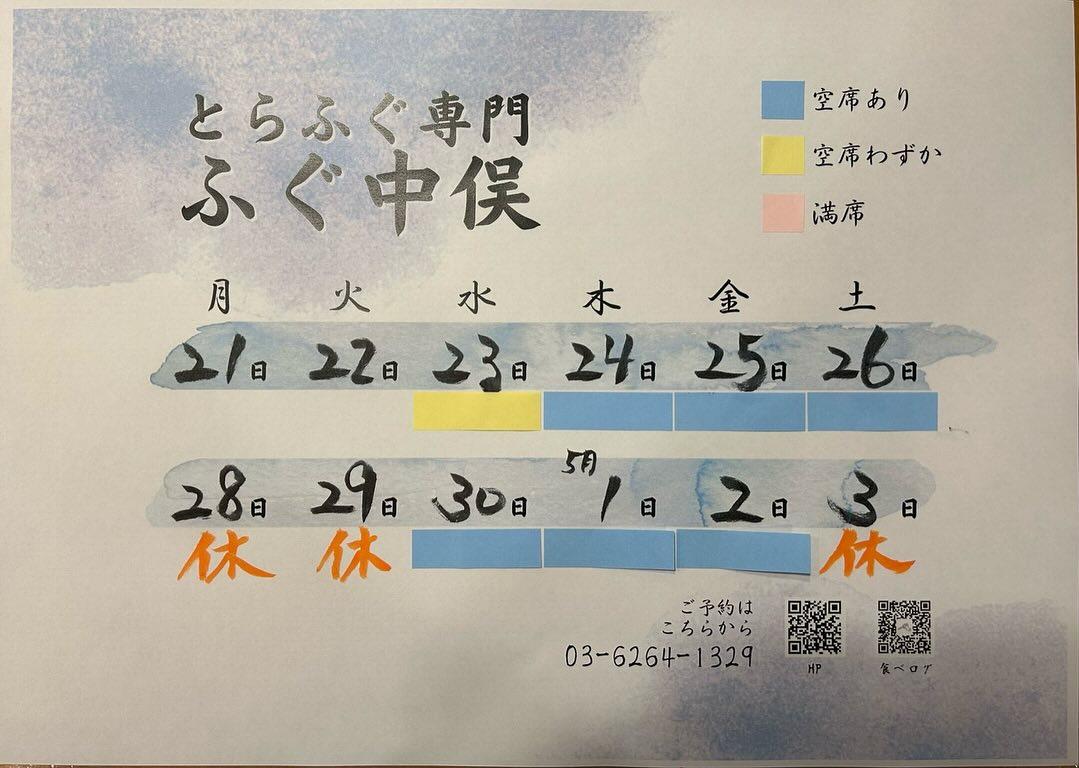 とらふぐ専門
ふぐ中俣
空席あり
空席わずか
満席
月 火 水 木 金 土
21日 22日 23日 24日 25日 26日
5月
28日 29日 30日 1日 2日 3日
休 休 休
ご予約は
こちらから
03-6264-1329
HP 食べログ